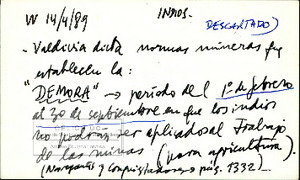 W 14/4/89 INDIOS.
(DESCARTADO)
- Valdivia dicta normas mineras que
establecen la:
"DEMORA" → período del 1º de febrero
al 30 de septiembre en que los indios
no podrán ser aplicados al trabajo
de las minas (para agricultura).
(Naregantes y Conquistadores → pág. 1332)